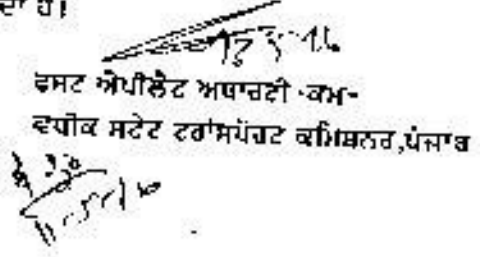 ਦਾ ਹੈ।
ਫਸਟ ਐਪੀਲੈਟ ਅਥਾਰਟੀ-ਕਮ-
ਵਧੀਕ ਸਟੇਟ ਟਰਾਂਸਪੋਰਟ ਕਮਿਸ਼ਨਰ,ਪੰਜਾਬ